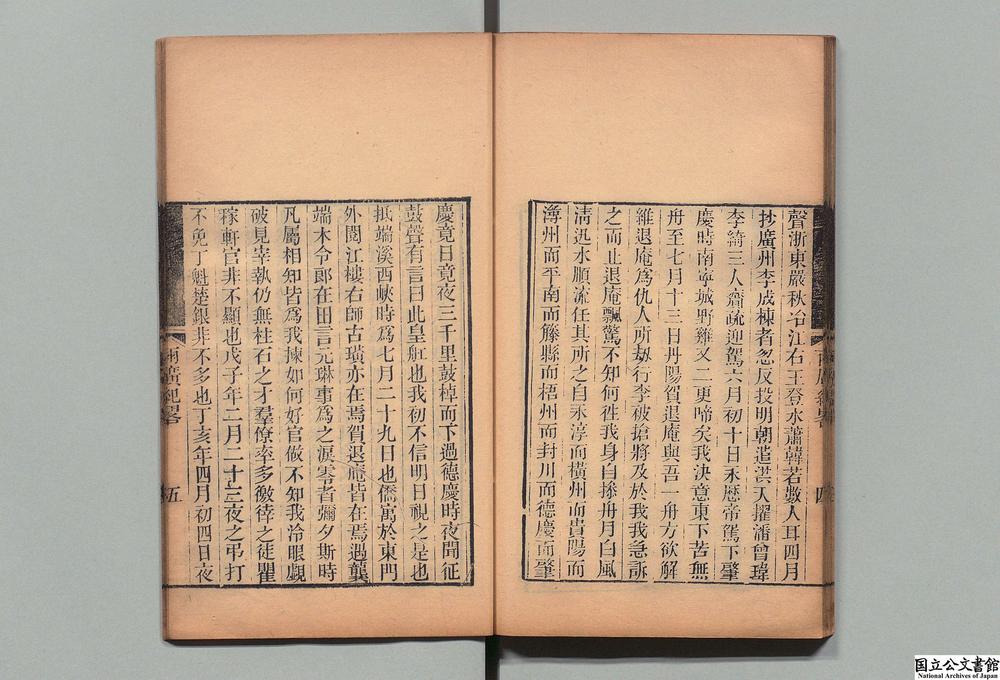 聲浙東嚴秋冶江右王登水蕭韓若數人耳四月
抄廣州李成棟者忽反投明朝遣洪天擢潘曾瑋
李綺三人齎疏迎駕六月初十日永曆帝駕下肇
慶時南寧城野雞又二更啼矣我決意東下苦無
舟至七月十三日丹陽賀退庵與吾一舟方欲解
維退庵為仇人所刼行李被搶將及於我我急訴
之而止退庵飄驚不知何徃我身自撡舟月白風
清迅水順流任其所之自永淳而橫州而貴陽而
潯州而平南而籐縣而梧州而封川而德慶而肇
兩廣紀畧
四
慶竟日竟夜三千里鼓棹而下過德慶時夜聞征
鼓聲有言曰此皇舡也我初不信明日視之是也
抵端溪西峽時為七月二十九日也僑寓於東門
外閱江樓右師古璜亦在焉賀退庵皆在焉遇龔
端木令郎在田言元琳事為之淚零者彌夕斯時
凡屬相知皆為我揀如何好官做不知我冷眼覷
破見宰執仍無柱石之才羣僚率多徼倖之徒瞿
稼軒官非不顯也戊子年二月二十三夜之弔打
不免丁魁楚銀非不多也丁亥年四月初四日夜
兩廣紀畧
五
国立公文書館
National Archives of Japan